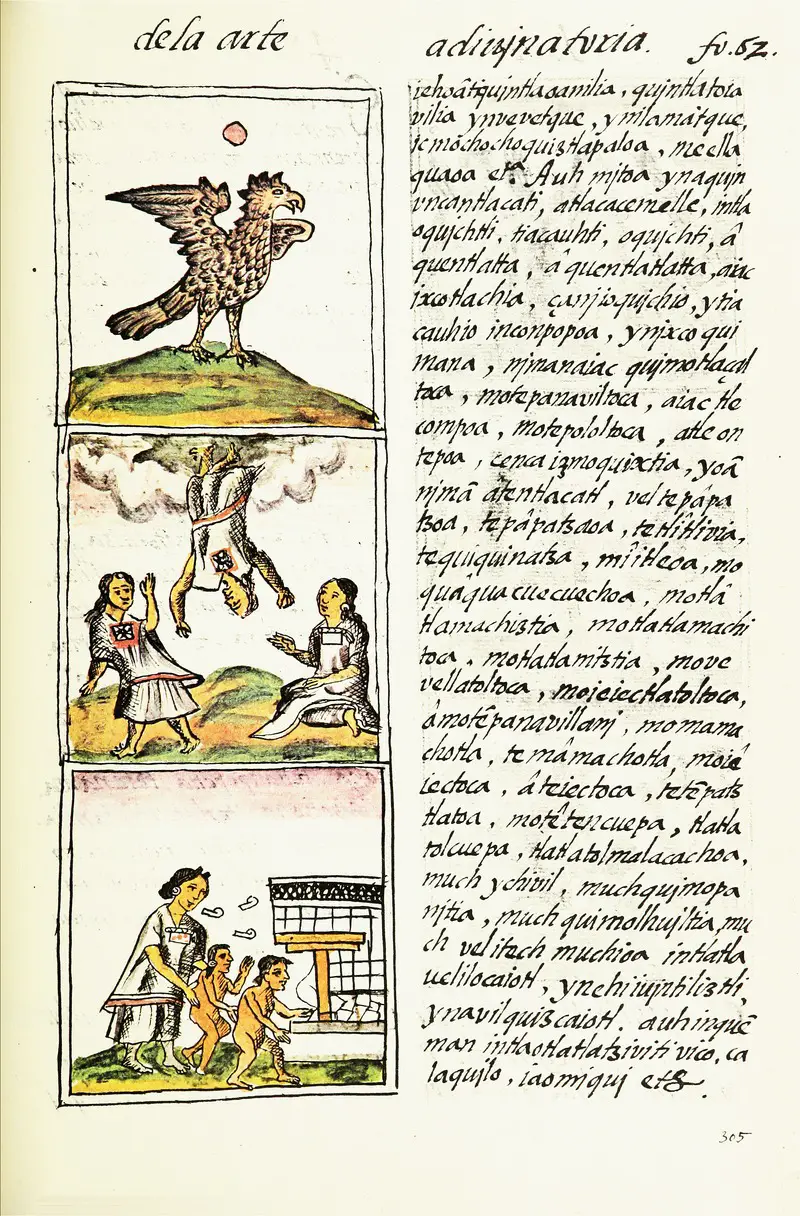 de la arte adiujnatoria. fo. 62.
iehoãtquintlaoamilia, quintlatoia
vilia ynvevetque, ynilamatque,
ic mochochoquiztlapaloa, meella
quaoa etc.ª Auh mitoa ynaquin
vncantlacati, atlacacemelle, intla
oquichtli, tiacauhti, oquichti, â
quentlatta, âquentlatlatta, aiac
ixcotlachia, çanjioquichio, ytia
cauhio inconpopoa, ynjxco qui
mana, njmanaiac quimotlaçal
toca, motepanaviltoca, aiac tle
compoa, motepololtoca, atle on
tepoa, cenca izmoquixtia, yoã
njmã atentlacatl, vel tepâpa
tzoa, tepâpatzaoa, tetlîtlivia,
tequiquinatza, mîitleoa, mo
quâqua cuecuechoa, motlâ
tlamachiztia, motlatlamachi
toca, motlatlamitztia, move
vellatoltoca, moieiectlatoltoca,
âmotêpanavillanj, momama
chotla, temâmachotla, moiê
iectoca, âteiectoca, tetêpatz
tlatoa, motêtencuepa, tlatla
tolcuepa, tlatlatolmalacachoa,
much ychivil, muchquimopa
njtia, much quimolhujltia, mu
ch velitech muchioa intlatla
uelilocaiotl, ynehiiuintiliztli,
ynavilquizcaiotl. auh inquẽ
man intlaotlatlatziviti vico, ca
laquilo, iaomiqui etc.
305